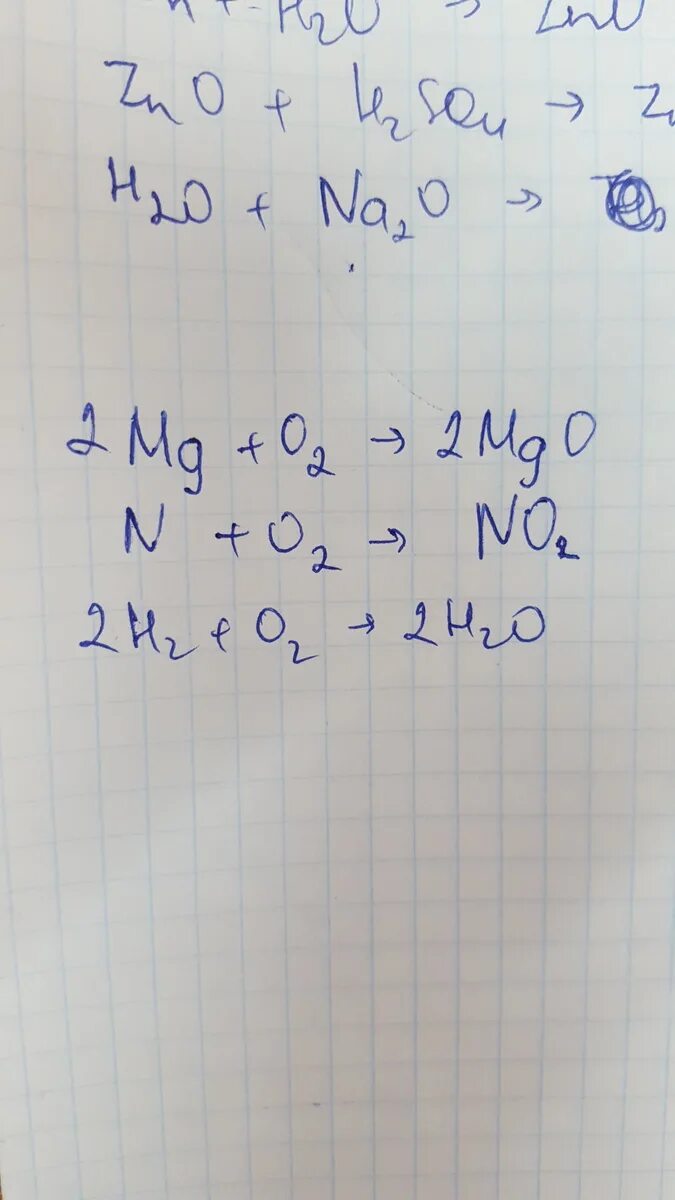 + H₂O → ZnO
ZnO + H₂SO₄ →
H₂O + Na₂O →
2Mg + O₂ → 2MgO
N + O₂ → NO₂
2H₂ + O₂ → 2H₂O